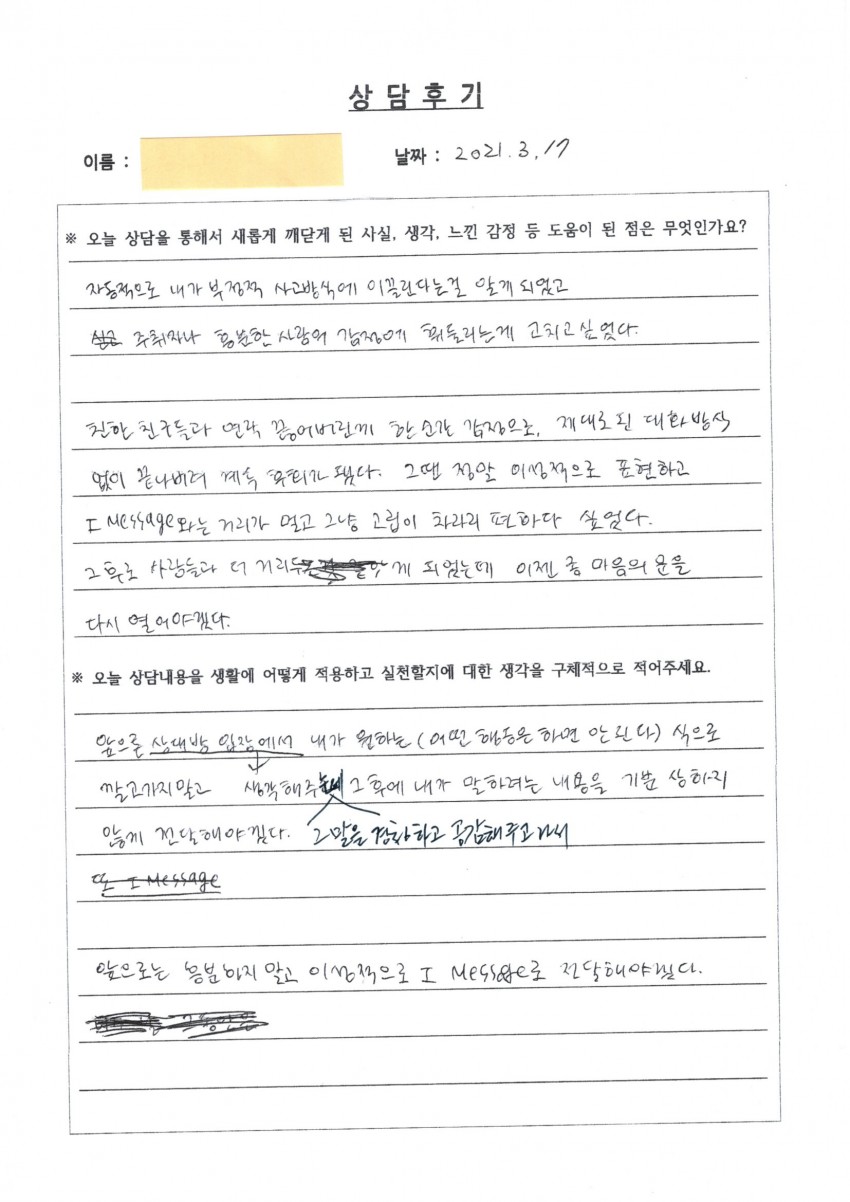 상담후기
이름 :
날짜 : 2021. 3. 17
※ 오늘 상담을 통해서 새롭게 깨닫게 된 사실, 생각, 느낀 감정 등 도움이 된 점은 무엇인가요?
자동적으로 내가 부정적 사고방식에 이끌린다는걸 알게 되었고
주취자나 흥분한 사람의 감정에 휘둘리는게 고치고 싶었다.
친한 친구들과 연락 끊어버린게 한 순간 감정으로, 제대로 된 대화방식
없이 끝나버려 계속 후회가 됐다. 그땐 정말 이성적으로 표현하고
I Message와는 거리가 멀고 그냥 고립이 차라리 편하다 싶었다.
그 후로 사람들과 더 거리두게 되었는데 이젠 좀 마음의 문을
다시 열어야겠다.
※ 오늘 상담내용을 생활에 어떻게 적용하고 실천할지에 대한 생각을 구체적으로 적어주세요.
앞으론 상대방 입장에서 내가 원하는 (어떤 행동은 하면 안된다) 식으로
깔고가지말고 생각해주 그 후에 내가 말하려는 내용을 기분 상하지
않게 전달해야겠다. 그 말을 경청하고 공감해주고 나서
또 I Message
앞으로는 흥분하지 말고 이성적으로 I Message로 전달해야겠다.